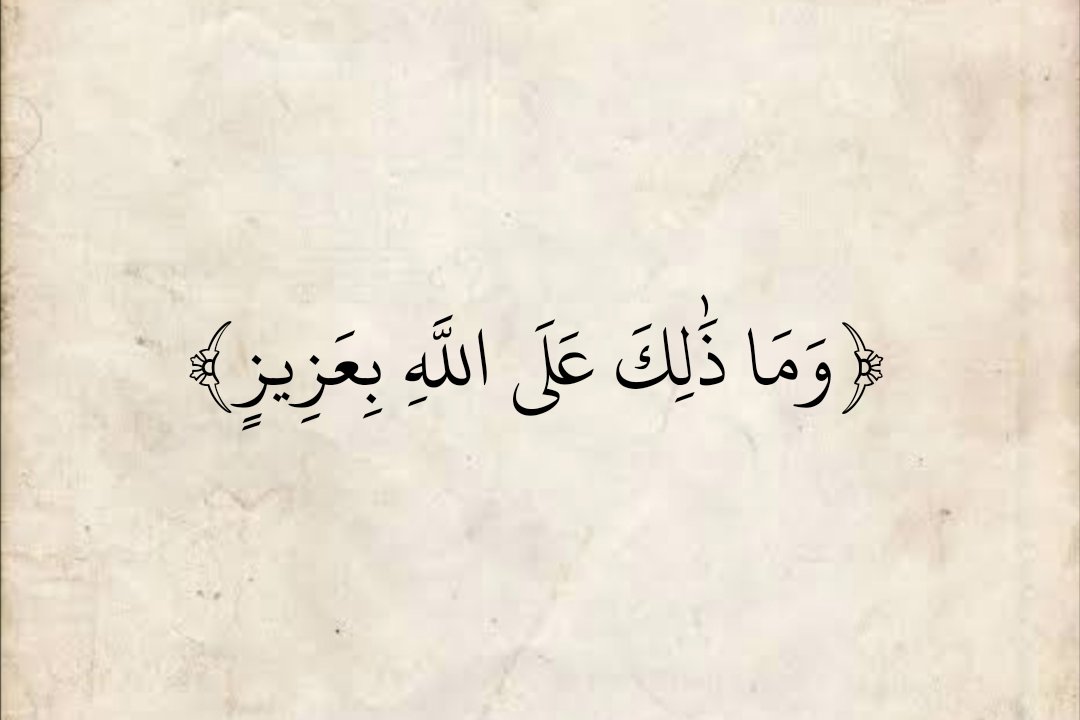 ﴿وَمَا ذَٰلِكَ عَلَى اللَّهِ بِعَزِيزٍ﴾